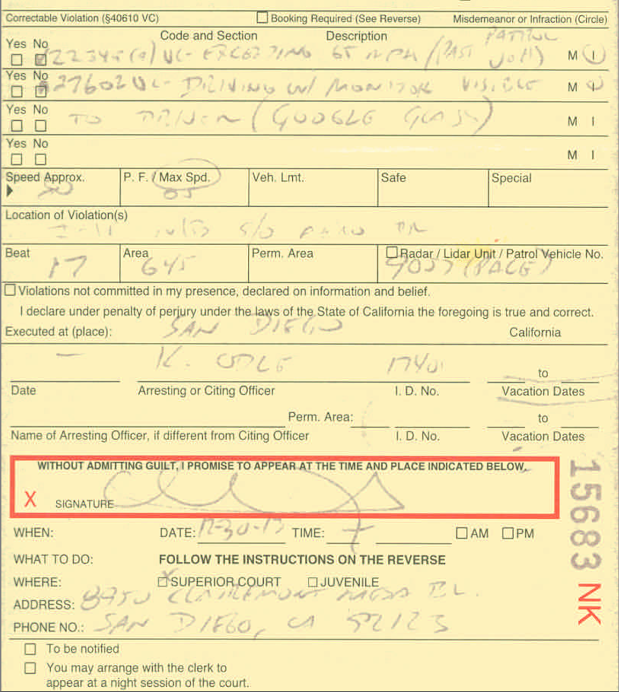 Correctable Violation (§40610 VC) Booking Required (See Reverse) Misdemeanor or Infraction (Circle)
Code and Section Description PATROL
Yes No 22349(a) VC- EXCEEDING 65 MPH (PAST M I
Yes No 27602 VC- DRIVING W/ MONITOR VISIBLE M I
Yes No TO DRIVER (GOOGLE GLASS) M I
Yes No M I
Speed Approx. P. F. / Max Spd. Veh. Lmt. Safe Special
65
Location of Violation(s)
S/O
Beat Area Perm. Area Radar / Lidar Unit / Patrol Vehicle No.
17 645 (PACE)
Violations not committed in my presence, declared on information and belief.
I declare under penalty of perjury under the laws of the State of California the foregoing is true and correct.
Executed at (place): SAN DIEGO California
K. 
to
Date Arresting or Citing Officer I. D. No. Vacation Dates
Perm. Area: to
Name of Arresting Officer, if different from Citing Officer I. D. No. Vacation Dates
WITHOUT ADMITTING GUILT, I PROMISE TO APPEAR AT THE TIME AND PLACE INDICATED BELOW.
X SIGNATURE
WHEN: DATE: TIME: AM PM
WHAT TO DO: FOLLOW THE INSTRUCTIONS ON THE REVERSE
WHERE: SUPERIOR COURT JUVENILE
ADDRESS: 8950 CLAIREMONT MESA BL.
PHONE NO.: SAN DIEGO, CA 92123
To be notified
You may arrange with the clerk to
appear at a night session of the court.
15683 NK